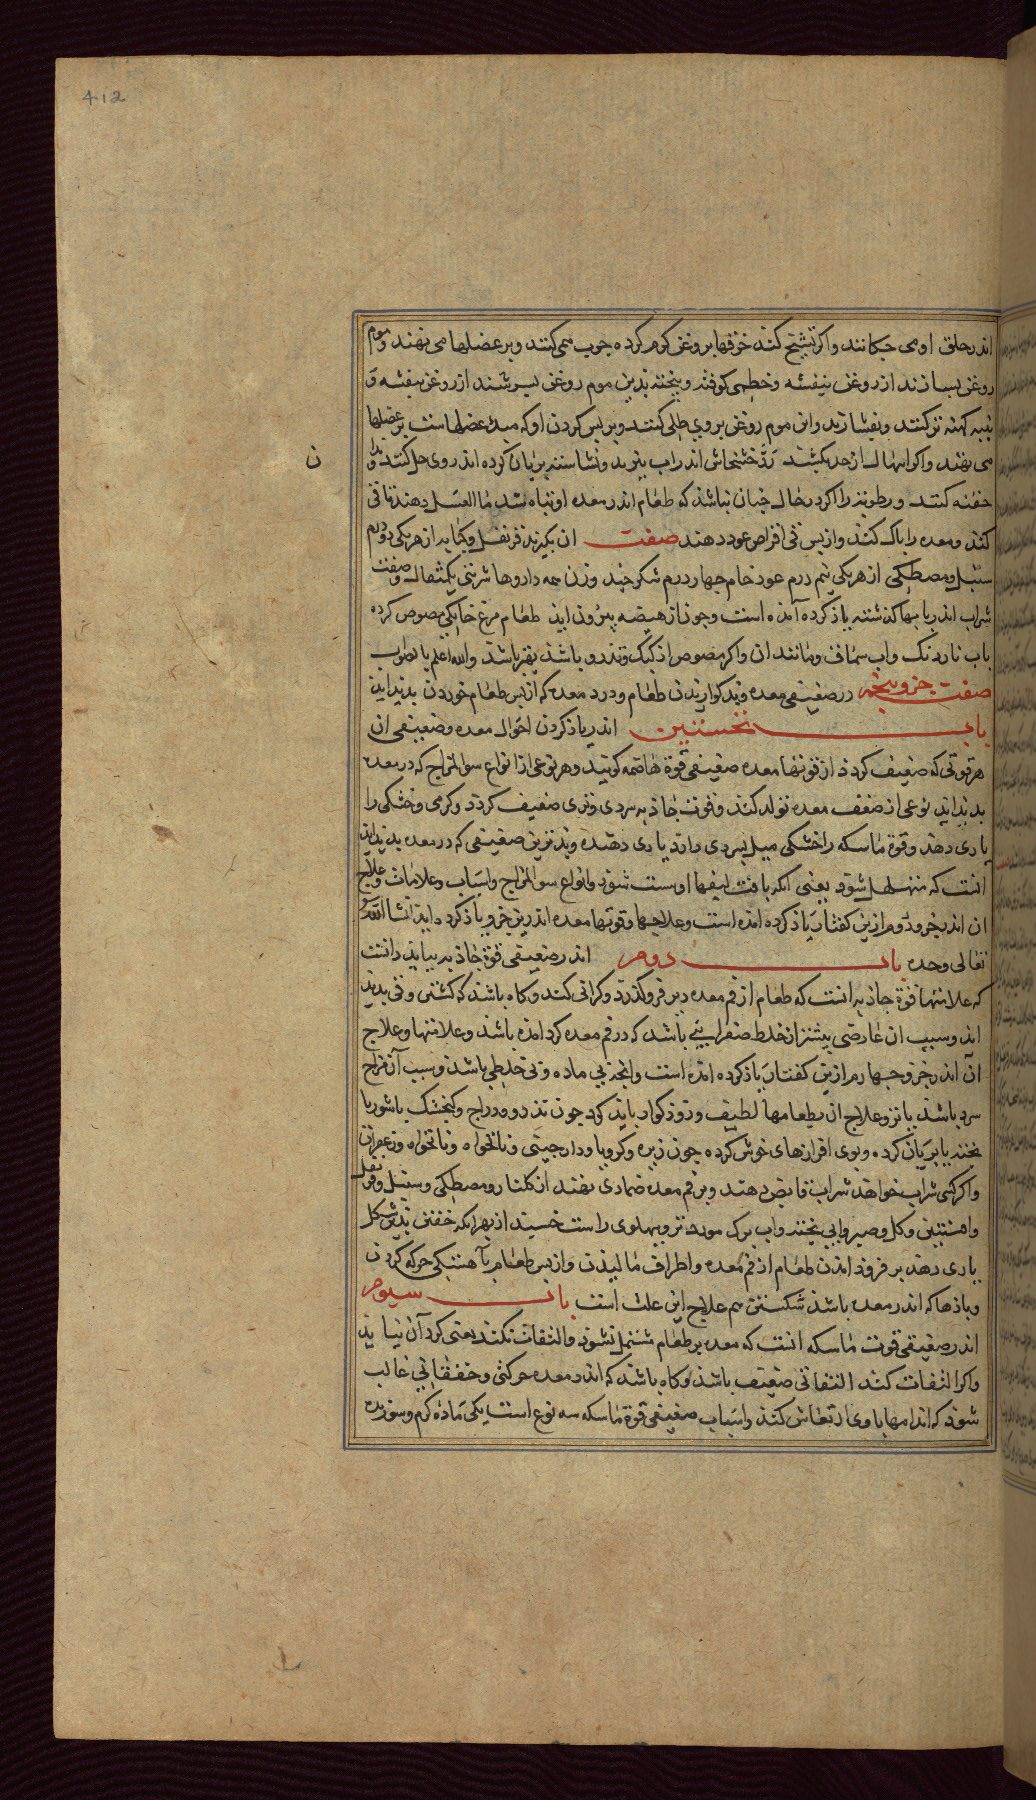 412
اندر حلق او می چکانند واکر تشنج کند خرقها بروغن کرم کرده جرب می کنند وبر عضلها می نهند وموم
روغن بسازند از روغن بنفشه وخطمی کوفته وبیخته بدین موم روغن بسرشند از روغن بنفشه و
پنبه کهنه تر کنند وبفشارند واین موم روغن بر وی طلی کنند وبر پس کردن او که مبداء عضلها است بر عضلها
می نهند واکر اسهال از حد بکشد خشخاش اندر اب بپزند ونشاسته بریان کرده اندر وی حل کنند وبدان
ن
حقنه کنند ورطوبتها کرد بحال چنان نباشد که طعام اندر معده او تباه شد ما العسل دهند تا قی
کند ومعده را پاک کند واز پس قی اقراص عود دهند صفت ان بکیرند قرنفل وکبابه از هر یکی دو درم
سنبل ومصطکی از هر یکی نیم درم عود خام چهار درم شکر چند وزن همه داروها شربتی یکمثقال وصفت
شراب اندر بابها کذشته یاذ کرده آمذه است وچون از هیضه بیرون ایذ طعام مرغ خانکی مصوص کرده
باب ناردنک واب سماق ومانند ان واکر مصوص از کبک وتذرو باشذ بهتر باشذ والله اعلم بالصواب
صفت جزو پنجم در ضعیفی معده وبد کواریدن طعام ودرد معده که از پس طعام خوردن پدید ایذ
باب نخستین اندر یاذ کردن احوال معده وضعیفی ان
هر قوتی که ضعیف کردذ از قوتها معده ضعیفی قوة هاضمه کویند وهر نوعی از انواع سوالمزاج که در معده
پدید ایذ نوعی از ضعف معده تولد کند وقوت جاذبه سردی وتری ضعیف کردذ وکرمی وخشکی را
یاری دهد وقوة ماسکه را خشکی میل بسردی دارد یاری دهنده وبذترین ضعیفی که در معده پدید ایذ
انست که متهلهل شوذ یعنی انکه بافت لیفها او سست شوذ وانواع سوالمزاج واسباب وعلامات وعلاج
ان اندر جزو دوم ازین کفتار یاذ کرده امذه است وعلاجها وقوتها معده اندرین جزو یاذ کرده ایذ انشا الله
تعالی وحده باب دوم اندر ضعیفی قوة جاذبه بباید دانست
که علامتها قوة جاذبه انست که طعام از فم معده دیر فرو کذرد وکرانی کند وکاه باشذ که کشتن وقی پدید
اید وسبب ان عارضی بیشتر از خلط صفرایی باشذ که در فم معده کرد امذه باشذ وعلامتها وعلاج
آن اندر جزو چهارم ازین کفتار یاذ کرده امذه است وانچه بی ماده وبی خلطی باشذ وسبب آن مزاج
سرد باشذ یا تر وعلاج ان بطعامها لطیف وزوذ کوار باید کرد چون تذرو ودراج وکنجشک یا شوربا
پخته یا بریان کرده وبوی افزارهای خوش کرده چون زیره وکرویا ودارچینی ونانخواه وزعفران
واکر کسی شراب خواهد شراب قابض دهند وبر فم معده ضمادی نهند از کلنار ومصطکی وسنبل وقرنفل
وافسنتین وکل وصبر وابی پخته واب برک مورد تر وپهلوی راست خسپند از بهر انکه خفتن بدین شکل
یاری دهد بر فرود امدن طعام از فم معده واطراف مالیدن واز پس طعام باهستکی حرکه کردن
وباذها که اندر معده باشذ شکستن هم علاج این علت است باب سیوم
اندر ضعیفی قوت ماسکه انست که معده بر طعام مشتمل نشوذ والتفات نکند یعنی کرد آن نیاید
واکر التفات کند التفاتی ضعیف باشذ وکاه باشذ که اندر معده حرکتی وخفقانی غالب
شوذ که اندامها با وی ارتعاش کند واسباب ضعیفی قوة ماسکه سه نوع است یکی مادة کرم وسوزنده